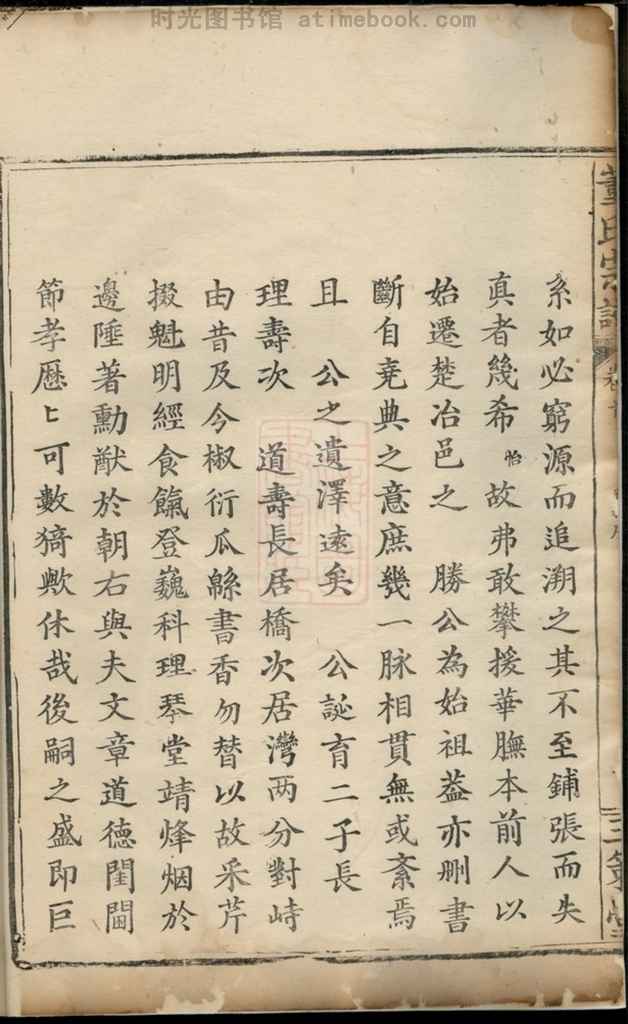 时光图书馆 atimebook.com
董氏宗譜
系如必窮源而追溯之其不至鋪張而失
真者幾希怡故弗敢攀援華膴本前人以
始遷楚冶邑之 勝公為始祖葢亦刪書
斷自堯典之意庶幾一脉相貫無或紊焉
且 公之遺澤遠矣 公誕育二子長
理壽次 道壽長居橋次居灣两分對峙
由昔及今椒衍瓜緜書香勿替以故采芹
掇魁明經食餼登巍科理琴堂靖烽烟於
邊陲著勳猷於朝右與夫文章道德閨閫
節孝歷匕可數猗歟休哉後嗣之盛即巨